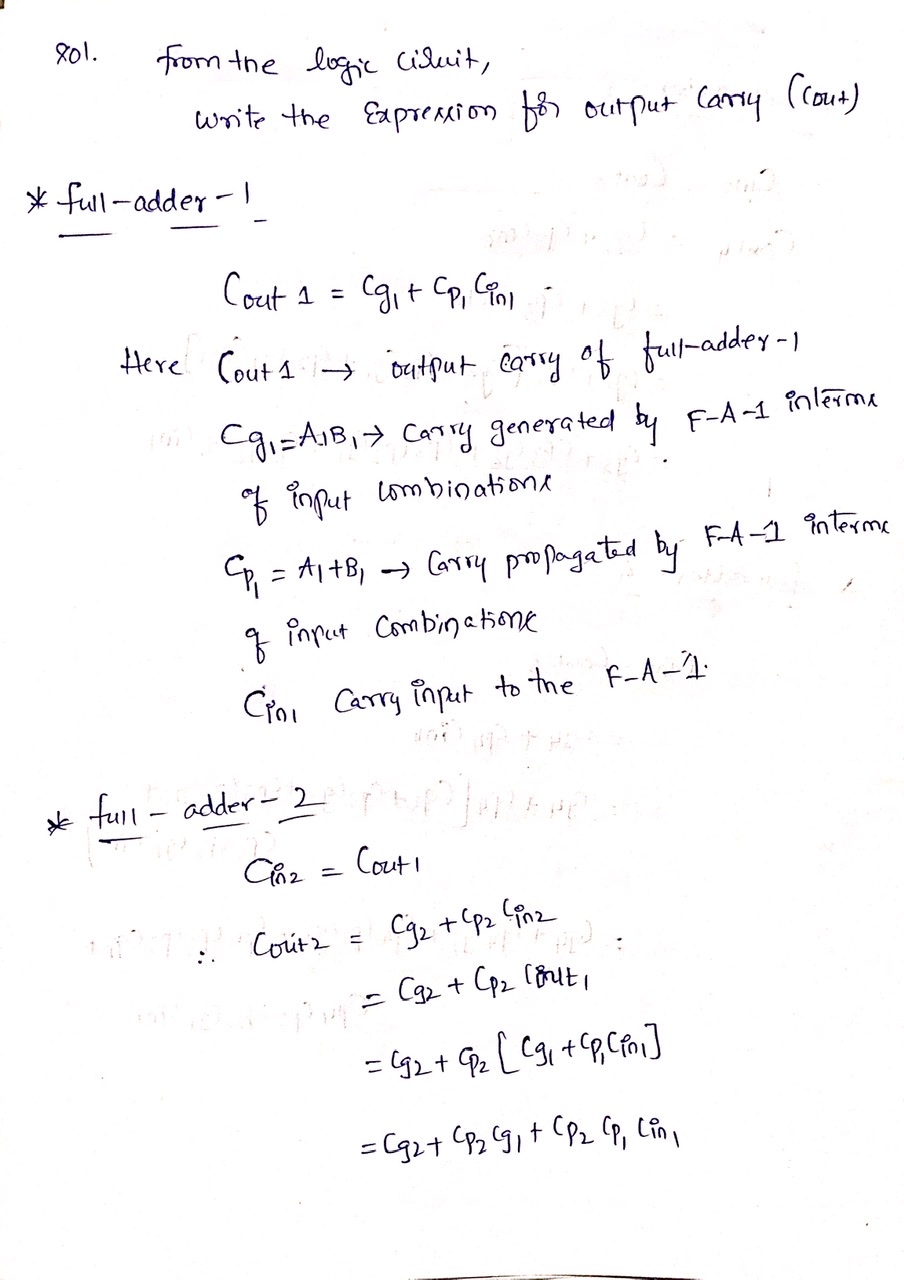 Sol. from the logic circuit,
write the Expression for output Carry (Cout)
* full-adder-1
Cout 1 = Cg1 + Cp1 Cin1
Here Cout 1 → output carry of full-adder-1
Cg1 = A1B1 → Carry generated by F-A-1 interms
of input combinations
Cp1 = A1+B1 → Carry propagated by F-A-1 interms
of input Combinations
Cin1 Carry input to the F-A-1.
* full - adder - 2
Cin2 = Cout1
∴ Cout2 = Cg2 + Cp2 Cin2
= Cg2 + Cp2 Cout1
= Cg2 + Cp2 [Cg1 + Cp1Cin1]
= Cg2 + Cp2 Cg1 + Cp2 Cp1 Cin1